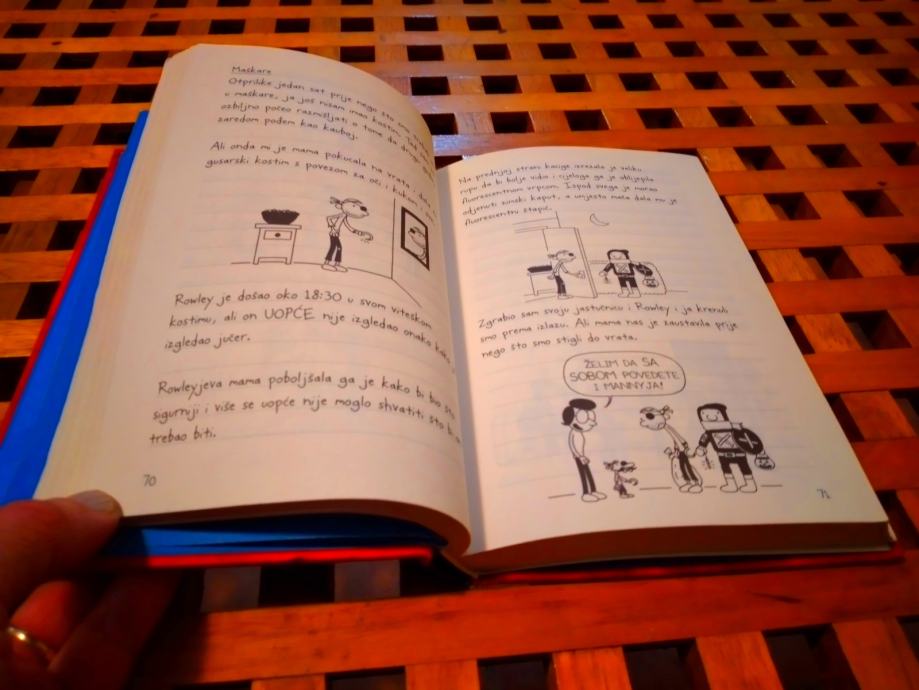 Maškare
Otprilike jedan sat prije nego što smo
u maškare, ja još nisam imao kostim. Tad sam
ozbiljno počeo razmišljati o tome da drugi
zaredom pođem kao kauboj.
Ali onda mi je mama pokucala na vrata i dala
gusarski kostim s povezom za oči i kukom i
Rowley je došao oko 18:30 u svom viteškom
kostimu, ali on UOPĆE nije izgledao onako kako
izgledao jučer.
Rowleyjeva mama poboljšala ga je kako bi bio
sigurniji i više se uopće nije moglo shvatiti što bi
trebao biti.
70
Na prednjoj strani kacige izrezala je veliku
rupu da bi bolje vidio i cijeloga ga je oblijepila
fluorescentnom vrpcom. Ispod svega je morao
odjenuti zimski kaput, a umjesto mača dala mu je
fluorescentni štapić.
Zgrabio sam svoju jastučnicu i Rowley i ja krenuli
smo prema izlazu. Ali mama nas je zaustavila prije
nego što smo stigli do vrata.
ŽELIM DA SA
SOBOM POVEDETE
I MANNYJA!
71